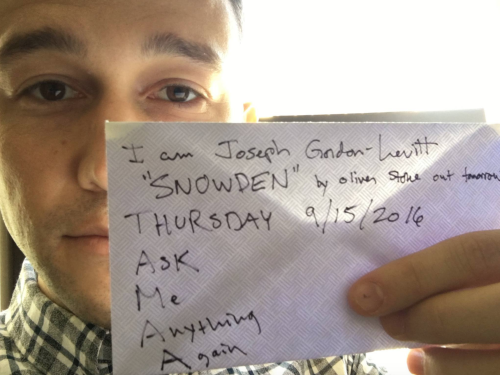 I am Joseph Gordon-Levitt
"SNOWDEN" by oliver Stone out tomorrow
THURSDAY 9/15/2016
ASK
Me
Anything
Again